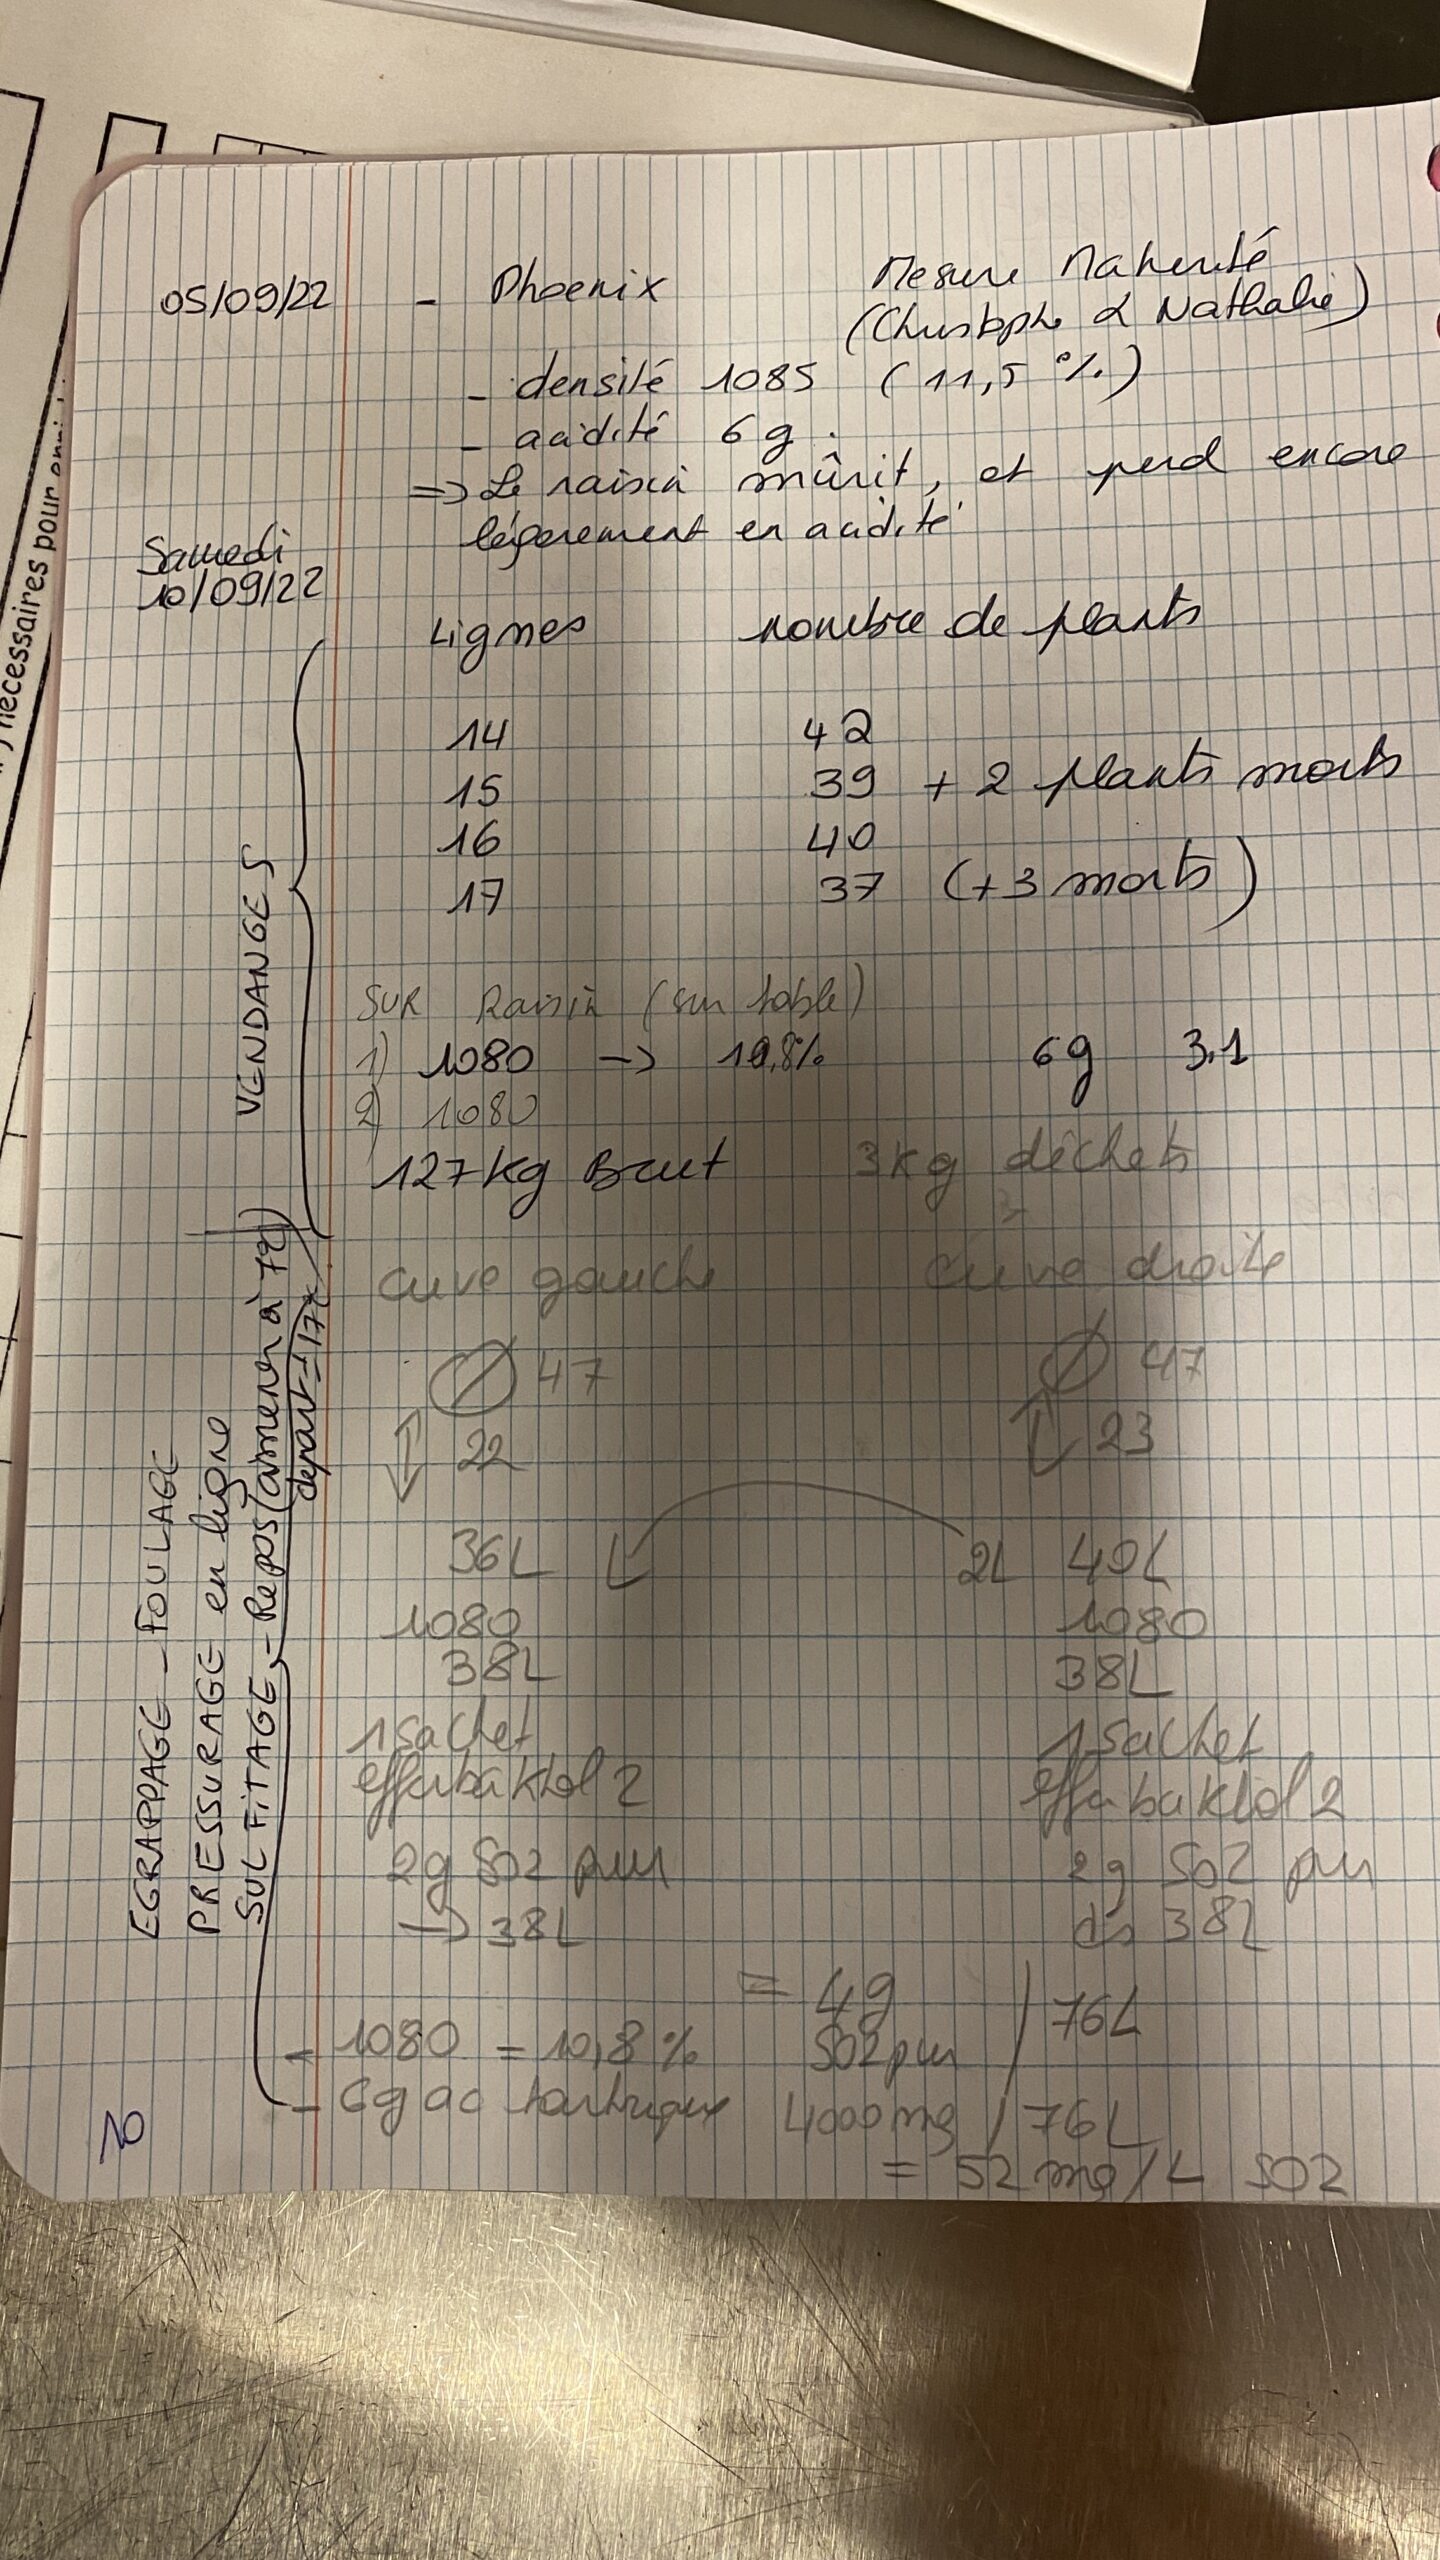 05/09/22 - Phoenix Mesure Maturité
(Christophe & Nathalie)
- densité 1085 (11,5 %)
- acidité 6 g.
=> Le raisin mûrit, et perd encore
légèrement en acidité
Samedi
10/09/22
Lignes nombre de plants
14 42
15 39 + 2 plants morts
16 40
17 37 (+3 morts)
VENDANGES
SUR Raisin (sur table)
1) 1080 -> 10,8% 6g 3.1
2) 1080
127 kg Brut 3kg déchets
cuve gauche cuve droite
Ø 47 Ø 47
↕ 22 ↕ 23
36L 2L 40L
1080 1080
38L 38L
1 sachet 1 sachet
effrbaktol 2 effrbaktol 2
2g SO2 pur 2g SO2 pur
-> 38L ds 38L
= 4g / 76L
SO2 pur
- 1080 = 10,8 %
- 6g ac tartrique 4000 mg / 76L
= 52 mg/L SO2
EGRAPPAGE - FOULAGE
PRESSURAGE en ligne
SULFITAGE - Repos (amener à 7°)
départ = 17°
10
nécessaires pour